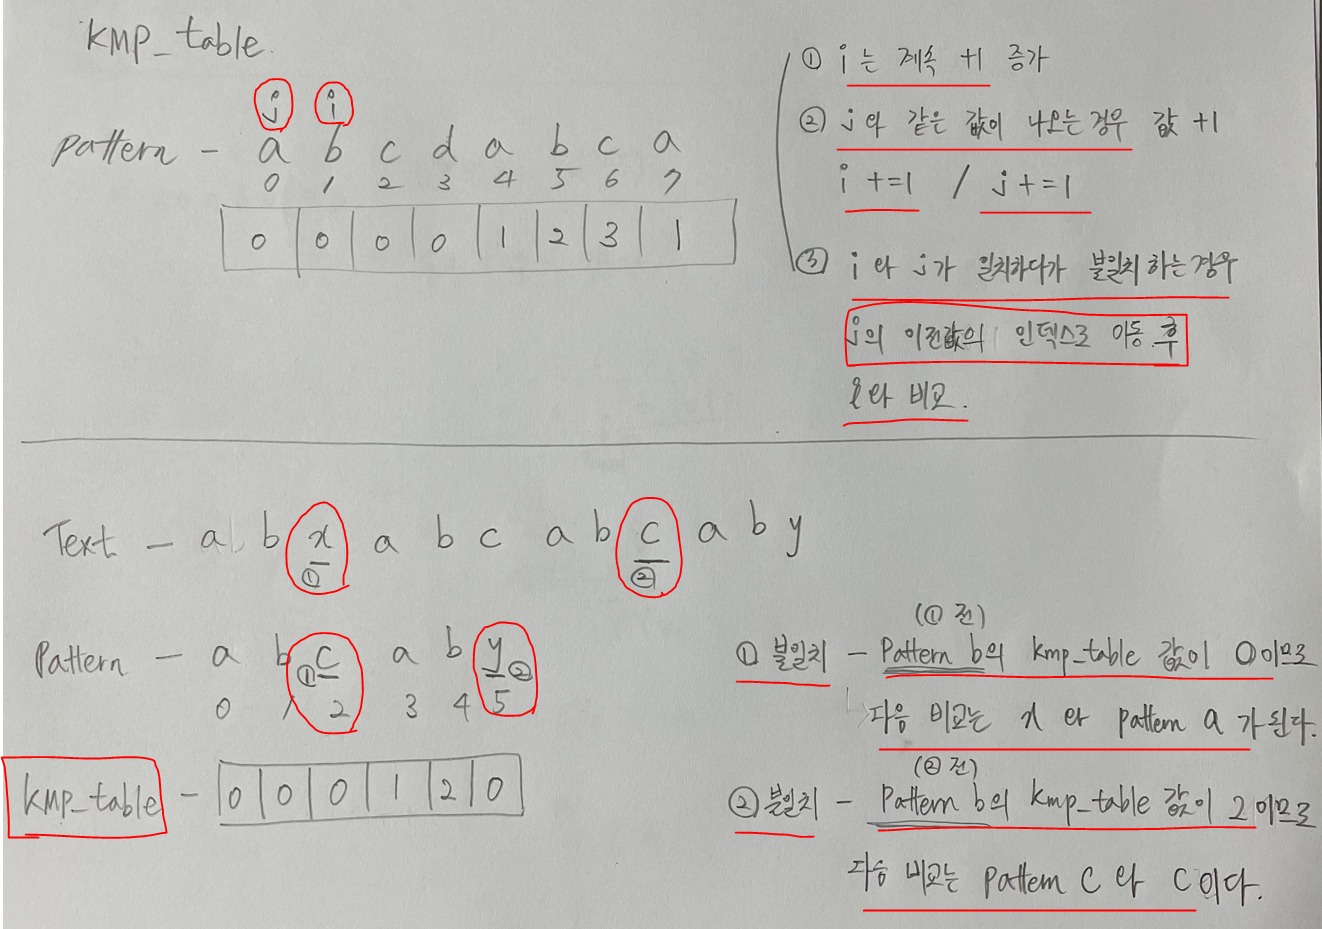 KMP_table.
j i
pattern - a b c d a b c a
0 1 2 3 4 5 6 7
0 0 0 0 1 2 3 1
① i는 계속 +1 증가
② j와 같은 값이 나오는 경우 값 +1
i +=1 / j +=1
③ i와 j가 일치하다가 불일치하는 경우
j의 이전값의 인덱스로 이동 후
i와 비교.
Text - a b x a b c a b c a b y
① ②
Pattern - a b ① c a b y ②
0 1 2 3 4 5
KMP_table - 0 0 0 1 2 0
(① 전)
① 불일치 - Pattern b의 kmp_table 값이 0이므로
다음 비교는 x와 pattern a가 된다.
(② 전)
② 불일치 - Pattern b의 kmp_table 값이 2이므로
다음 비교는 pattern c와 c이다.